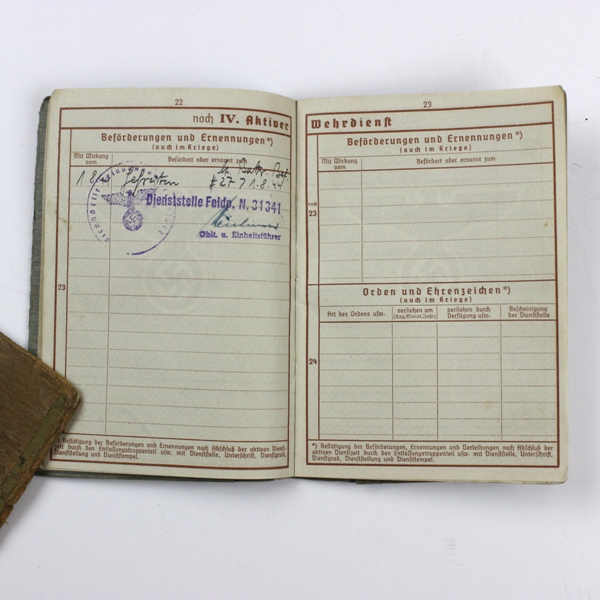 22
noch IV. Aktiver
Beförderungen und Ernennungen*)
(auch im Kriege)
Mit Wirkung vom
Befördert oder ernannt zum
1.8.44 Gefreiten
1.8.44
Dienststelle Feldp. N. 31341
Oblt. u. Einheitsführer
23
*) Bestätigung der Beförderungen und Ernennungen nach Abschluß der aktiven Dienst-
zeit durch den Entlassungstruppenteil usw. mit Dienststelle, Unterschrift, Dienstgrad,
Dienststellung und Dienststempel.
23
Wehrdienst
Beförderungen und Ernennungen*)
(auch im Kriege)
Mit Wirkung vom
Befördert oder ernannt zum
noch
23
Orden und Ehrenzeichen*)
(auch im Kriege)
Art des Ordens usw.
verliehen am
(Tag, Monat, Jahr)
verliehen durch
Verfügung usw.
Bescheinigung
der Dienststelle
24
*) Bestätigung der Beförderungen, Ernennungen und Verleihungen nach Abschluß der
aktiven Dienstzeit durch den Entlassungstruppenteil usw. mit Dienststelle, Unterschrift,
Dienstgrad, Dienststellung und Dienststempel.